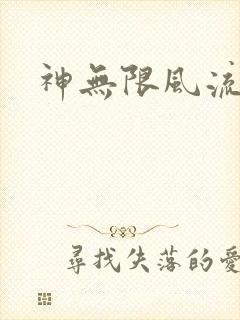 神無限風流
尋找失落的愛